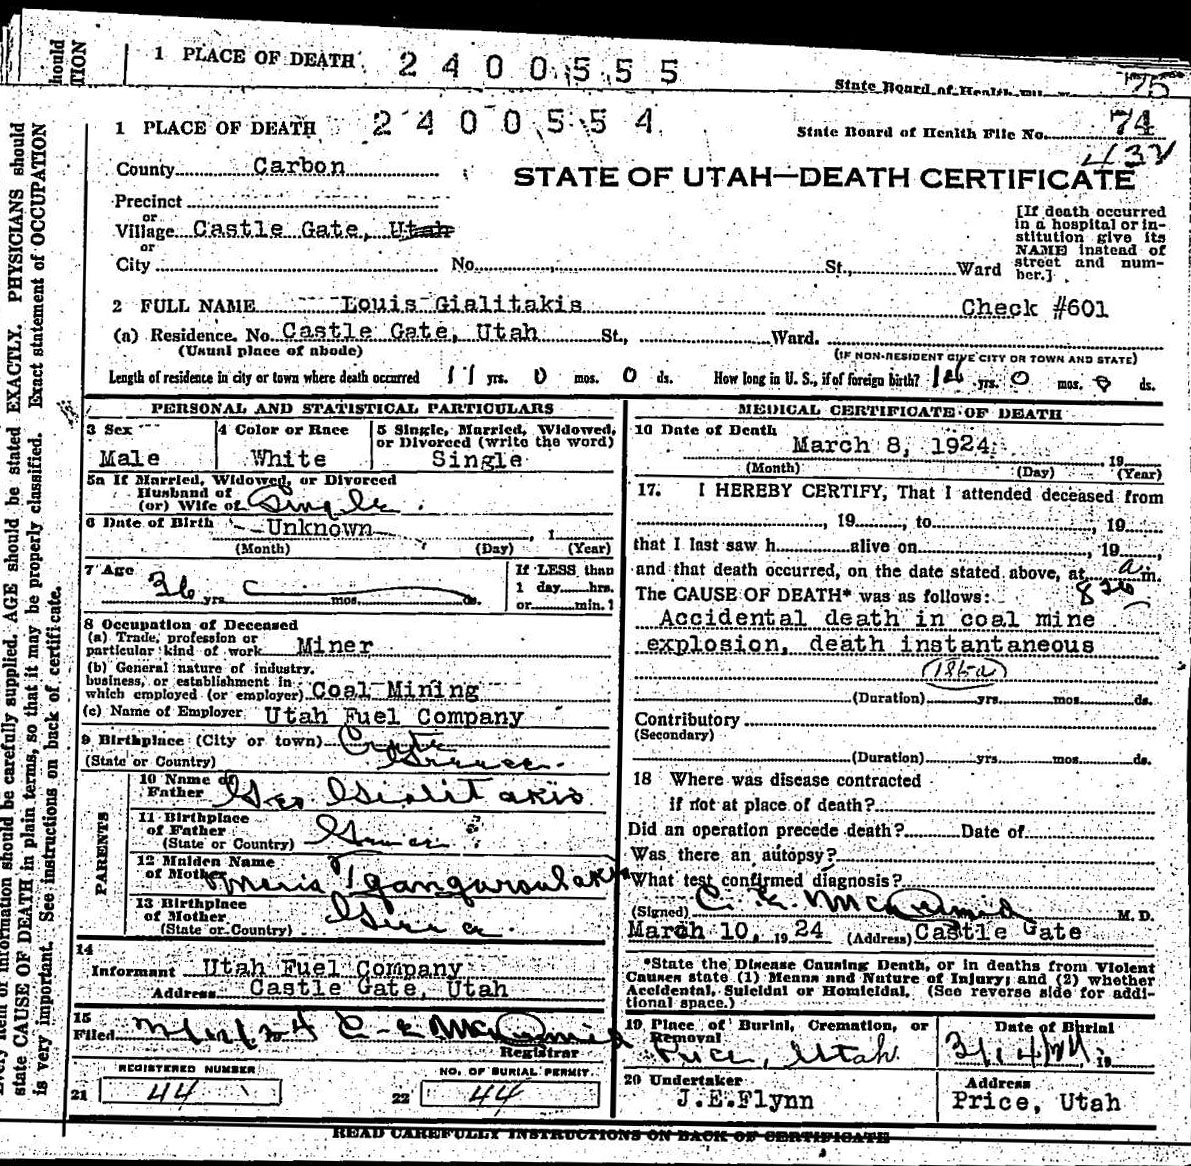 hould
TION
1 PLACE OF DEATH 2400555
State Board of Health 75
1 PLACE OF DEATH 2400554
State Board of Health File No. 74
432
County Carbon
STATE OF UTAH—DEATH CERTIFICATE
Precinct
or
Village Castle Gate, Utah
or
City No. St., Ward
[If death occurred
in a hospital or in-
stitution give its
NAME instead of
street and num-
ber.]
2 FULL NAME Louis Gialitakis Check #601
(a) Residence. No. Castle Gate, Utah St., Ward.
(Usual place of abode) (IF NON-RESIDENT GIVE CITY OR TOWN AND STATE)
Length of residence in city or town where death occurred 11 yrs. 0 mos. 0 ds. How long in U. S., if of foreign birth? yrs. 0 mos. 0 ds.
PERSONAL AND STATISTICAL PARTICULARS
3 Sex
Male
4 Color or Race
White
5 Single, Married, Widowed,
or Divorced (write the word)
Single
5a If Married, Widowed, or Divorced
Husband of
(or) Wife of Single
6 Date of Birth Unknown , 1
(Month) (Day) (Year)
7 Age 36 yrs. mos. ds.
If LESS than
1 day hrs.
or min.?
8 Occupation of Deceased
(a) Trade, profession or
particular kind of work Miner
(b) General nature of industry,
business, or establishment in
which employed (or employer) Coal Mining
(c) Name of Employer Utah Fuel Company
9 Birthplace (City or town) Crete
(State or Country) Greece.
PARENTS
10 Name of
Father Geo Gialitakis
11 Birthplace
of Father
(State or Country) Greece
12 Maiden Name
of Mother Maria
13 Birthplace
of Mother
(State or Country) Greece
14
Informant Utah Fuel Company
Address Castle Gate, Utah
15
Filed C. E. McDermid
Registrar
REGISTERED NUMBER
21 44
NO. OF BURIAL PERMIT.
22 44
MEDICAL CERTIFICATE OF DEATH
16 Date of Death
March 8, 1924 19
(Month) (Day) (Year)
17. I HEREBY CERTIFY, That I attended deceased from
, 19 , to , 19
that I last saw h alive on , 19 ,
and that death occurred, on the date stated above, at a m.
The CAUSE OF DEATH* was as follows: 820
Accidental death in coal mine
explosion, death instantaneous
(Duration) yrs. mos. ds.
Contributory
(Secondary)
(Duration) yrs. mos. ds.
18 Where was disease contracted
if not at place of death?
Did an operation precede death? Date of
Was there an autopsy?
What test confirmed diagnosis?
(Signed) C. E. McDermid M. D.
March 10, 1924 (Address) Castle Gate
*State the Disease Causing Death, or in deaths from Violent
Causes state (1) Means and Nature of Injury; and (2) whether
Accidental, Suicidal or Homicidal. (See reverse side for addi-
tional space.)
19 Place of Burial, Cremation, or
Removal
Price, Utah
Date of Burial
3/14/24 19
20 Undertaker
J.E.Flynn
Address
Price, Utah
READ CAREFULLY INSTRUCTIONS ON BACK OF CERTIFICATE
information should be carefully supplied. AGE should be stated EXACTLY. PHYSICIANS should
state CAUSE OF DEATH in plain terms, so that it may be properly classified. Exact statement of OCCUPATION
is very important. See instructions on back of certificate.